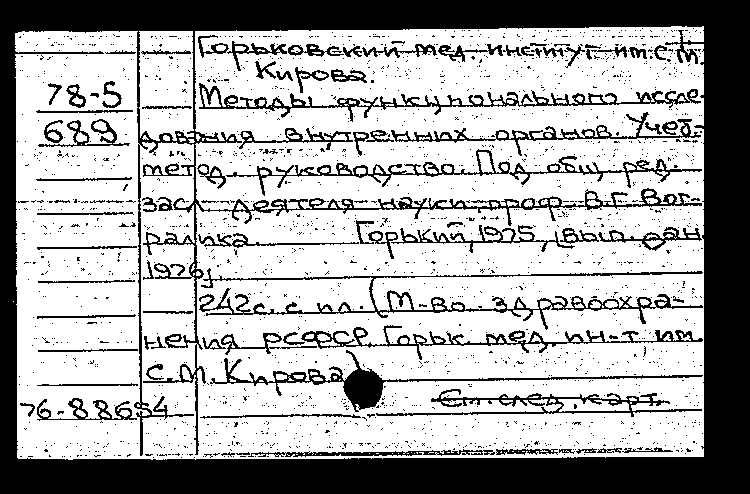 Горьковский мед. институт им. С. М.
Кирова.
78-5
Методы функционального иссле-
689
дования внутренних органов. Учеб.-
метод. руководство. Под общ. ред.
засл. деятеля науки проф. В. Г. Вог-
ралика. Горький, 1975, [вып. дан.
1976].
242 с. с ил. (М-во здравоохра-
нения РСФСР. Горьк. мед. ин-т им.
С. М. Кирова)
76-88654
См. след. карт.